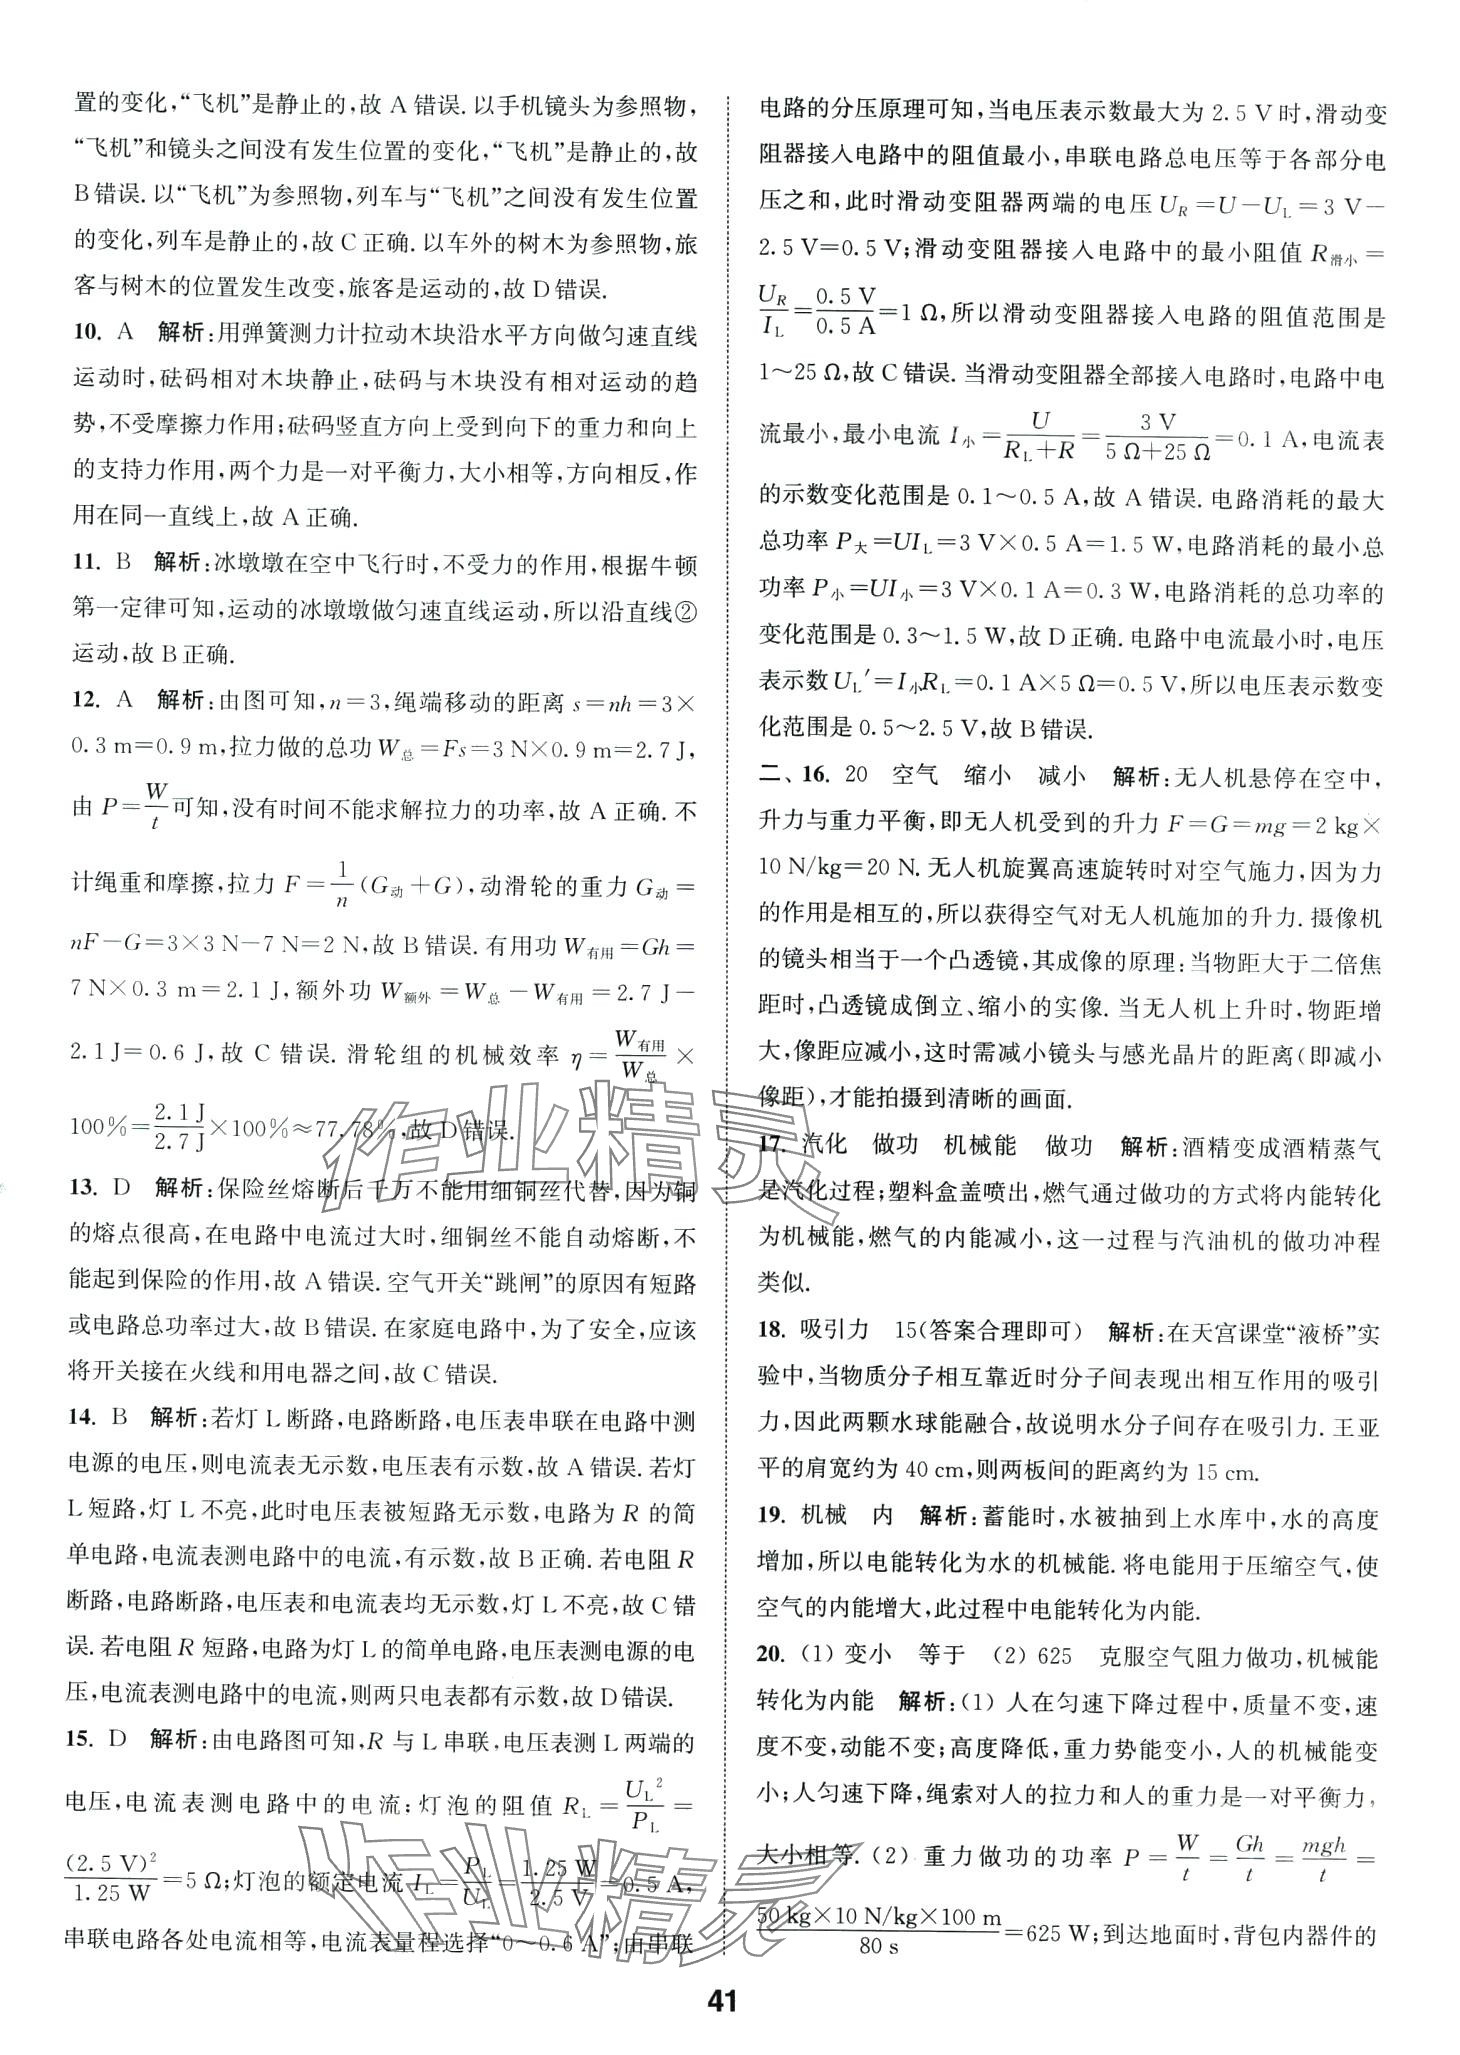 置的变化,“飞机”是静止的,故 A 错误. 以手机镜头为参照物,
“飞机”和镜头之间没有发生位置的变化,“飞机”是静止的,故
B 错误. 以“飞机”为参照物,列车与“飞机”之间没有发生位置
的变化,列车是静止的,故 C 正确. 以车外的树木为参照物,旅
客与树木的位置发生改变,旅客是运动的,故 D 错误.
10. A 解析:用弹簧测力计拉动木块沿水平方向做匀速直线
运动时,砝码相对木块静止,砝码与木块没有相对运动的趋
势,不受摩擦力作用;砝码竖直方向上受到向下的重力和向上
的支持力作用,两个力是一对平衡力,大小相等,方向相反,作
用在同一直线上,故 A 正确.
11. B 解析:冰墩墩在空中飞行时,不受力的作用,根据牛顿
第一定律可知,运动的冰墩墩做匀速直线运动,所以沿直线②
运动,故 B 正确.
12. A 解析:由图可知,n=3,绳端移动的距离 s=nh=3×
0.3 m=0.9 m,拉力做的总功 W总=Fs=3 N×0.9 m=2.7 J,
由 P=W/t可知,没有时间不能求解拉力的功率,故 A 正确. 不
计绳重和摩擦,拉力 F=1/n(G动+G),动滑轮的重力 G动=
nF-G=3×3 N-7 N=2 N,故 B 错误. 有用功 W有用=Gh=
7 N×0.3 m=2.1 J,额外功 W额外=W总-W有用=2.7 J-
2.1 J=0.6 J,故 C 错误. 滑轮组的机械效率 η=W有用/W总×
100%=2.1 J/2.7 J×100%≈77.78%,故 D 错误.
13. D 解析:保险丝熔断后千万不能用细铜丝代替,因为铜
的熔点很高,在电路中电流过大时,细铜丝不能自动熔断,不
能起到保险的作用,故 A 错误. 空气开关“跳闸”的原因有短路
或电路总功率过大,故 B 错误. 在家庭电路中,为了安全,应该
将开关接在火线和用电器之间,故 C 错误.
14. B 解析:若灯 L 断路,电路断路,电压表串联在电路中测
电源的电压,则电流表无示数,电压表有示数,故 A 错误. 若灯
L 短路,灯 L 不亮,此时电压表被短路无示数,电路为 R 的简
单电路,电流表测电路中的电流,有示数,故 B 正确. 若电阻 R
断路,电路断路,电压表和电流表均无示数,灯 L 不亮,故 C 错
误. 若电阻 R 短路,电路为灯 L 的简单电路,电压表测电源的电
压,电流表测电路中的电流,则两只电表都有示数,故 D 错误.
15. D 解析:由电路图可知,R 与 L 串联,电压表测 L 两端的
电压,电流表测电路中的电流;灯泡的阻值 RL=UL²/PL=
(2.5 V)²/1.25 W=5 Ω;灯泡的额定电流 IL=PL/UL=1.25 W/2.5 V=0.5 A,
串联电路各处电流相等,电流表量程选择“0~0.6 A”;由串联
电路的分压原理可知,当电压表示数最大为 2.5 V 时,滑动变
阻器接入电路中的阻值最小,串联电路总电压等于各部分电
压之和,此时滑动变阻器两端的电压 UR=U-UL=3 V-
2.5 V=0.5 V;滑动变阻器接入电路中的最小阻值 R滑小=
UR/IL=0.5 V/0.5 A=1 Ω,所以滑动变阻器接入电路的阻值范围是
1~25 Ω,故 C 错误. 当滑动变阻器全部接入电路时,电路中电
流最小,最小电流 I小=U/(RL+R)=3 V/(5 Ω+25 Ω)=0.1 A,电流表
的示数变化范围是 0.1~0.5 A,故 A 错误. 电路消耗的最大
总功率 P大=UIL=3 V×0.5 A=1.5 W,电路消耗的最小总
功率 P小=UI小=3 V×0.1 A=0.3 W,电路消耗的总功率的
变化范围是 0.3~1.5 W,故 D 正确. 电路中电流最小时,电压
表示数 UL′=I小RL=0.1 A×5 Ω=0.5 V,所以电压表示数变
化范围是 0.5~2.5 V,故 B 错误.
二、16. 20 空气 缩小 减小 解析:无人机悬停在空中,
升力与重力平衡,即无人机受到的升力 F=G=mg=2 kg×
10 N/kg=20 N. 无人机旋翼高速旋转时对空气施力,因为力
的作用是相互的,所以获得空气对无人机施加的升力. 摄像机
的镜头相当于一个凸透镜,其成像的原理:当物距大于二倍焦
距时,凸透镜成倒立、缩小的实像. 当无人机上升时,物距增
大,像距应减小,这时需减小镜头与感光晶片的距离(即减小
像距),才能拍摄到清晰的画面.
17. 汽化 做功 机械能 做功 解析:酒精变成酒精蒸气
是汽化过程;塑料盒盖喷出,燃气通过做功的方式将内能转化
为机械能,燃气的内能减小,这一过程与汽油机的做功冲程
类似.
18. 吸引力 15(答案合理即可) 解析:在天宫课堂“液桥”实
验中,当物质分子相互靠近时分子间表现出相互作用的吸引
力,因此两颗水球能融合,故说明水分子间存在吸引力. 王亚
平的肩宽约为 40 cm,则两板间的距离约为 15 cm.
19. 机械 内 解析:蓄能时,水被抽到上水库中,水的高度
增加,所以电能转化为水的机械能. 将电能用于压缩空气,使
空气的内能增大,此过程中电能转化为内能.
20. (1) 变小 等于 (2) 625 克服空气阻力做功,机械能
转化为内能 解析:(1) 人在匀速下降过程中,质量不变,速
度不变,动能不变;高度降低,重力势能变小,人的机械能变
小;人匀速下降,绳索对人的拉力和人的重力是一对平衡力,
大小相等. (2) 重力做功的功率 P=W/t=Gh/t=mgh/t=
50 kg×10 N/kg×100 m/80 s=625 W;到达地面时,背包内器件的
41
作业精灵
作业精灵